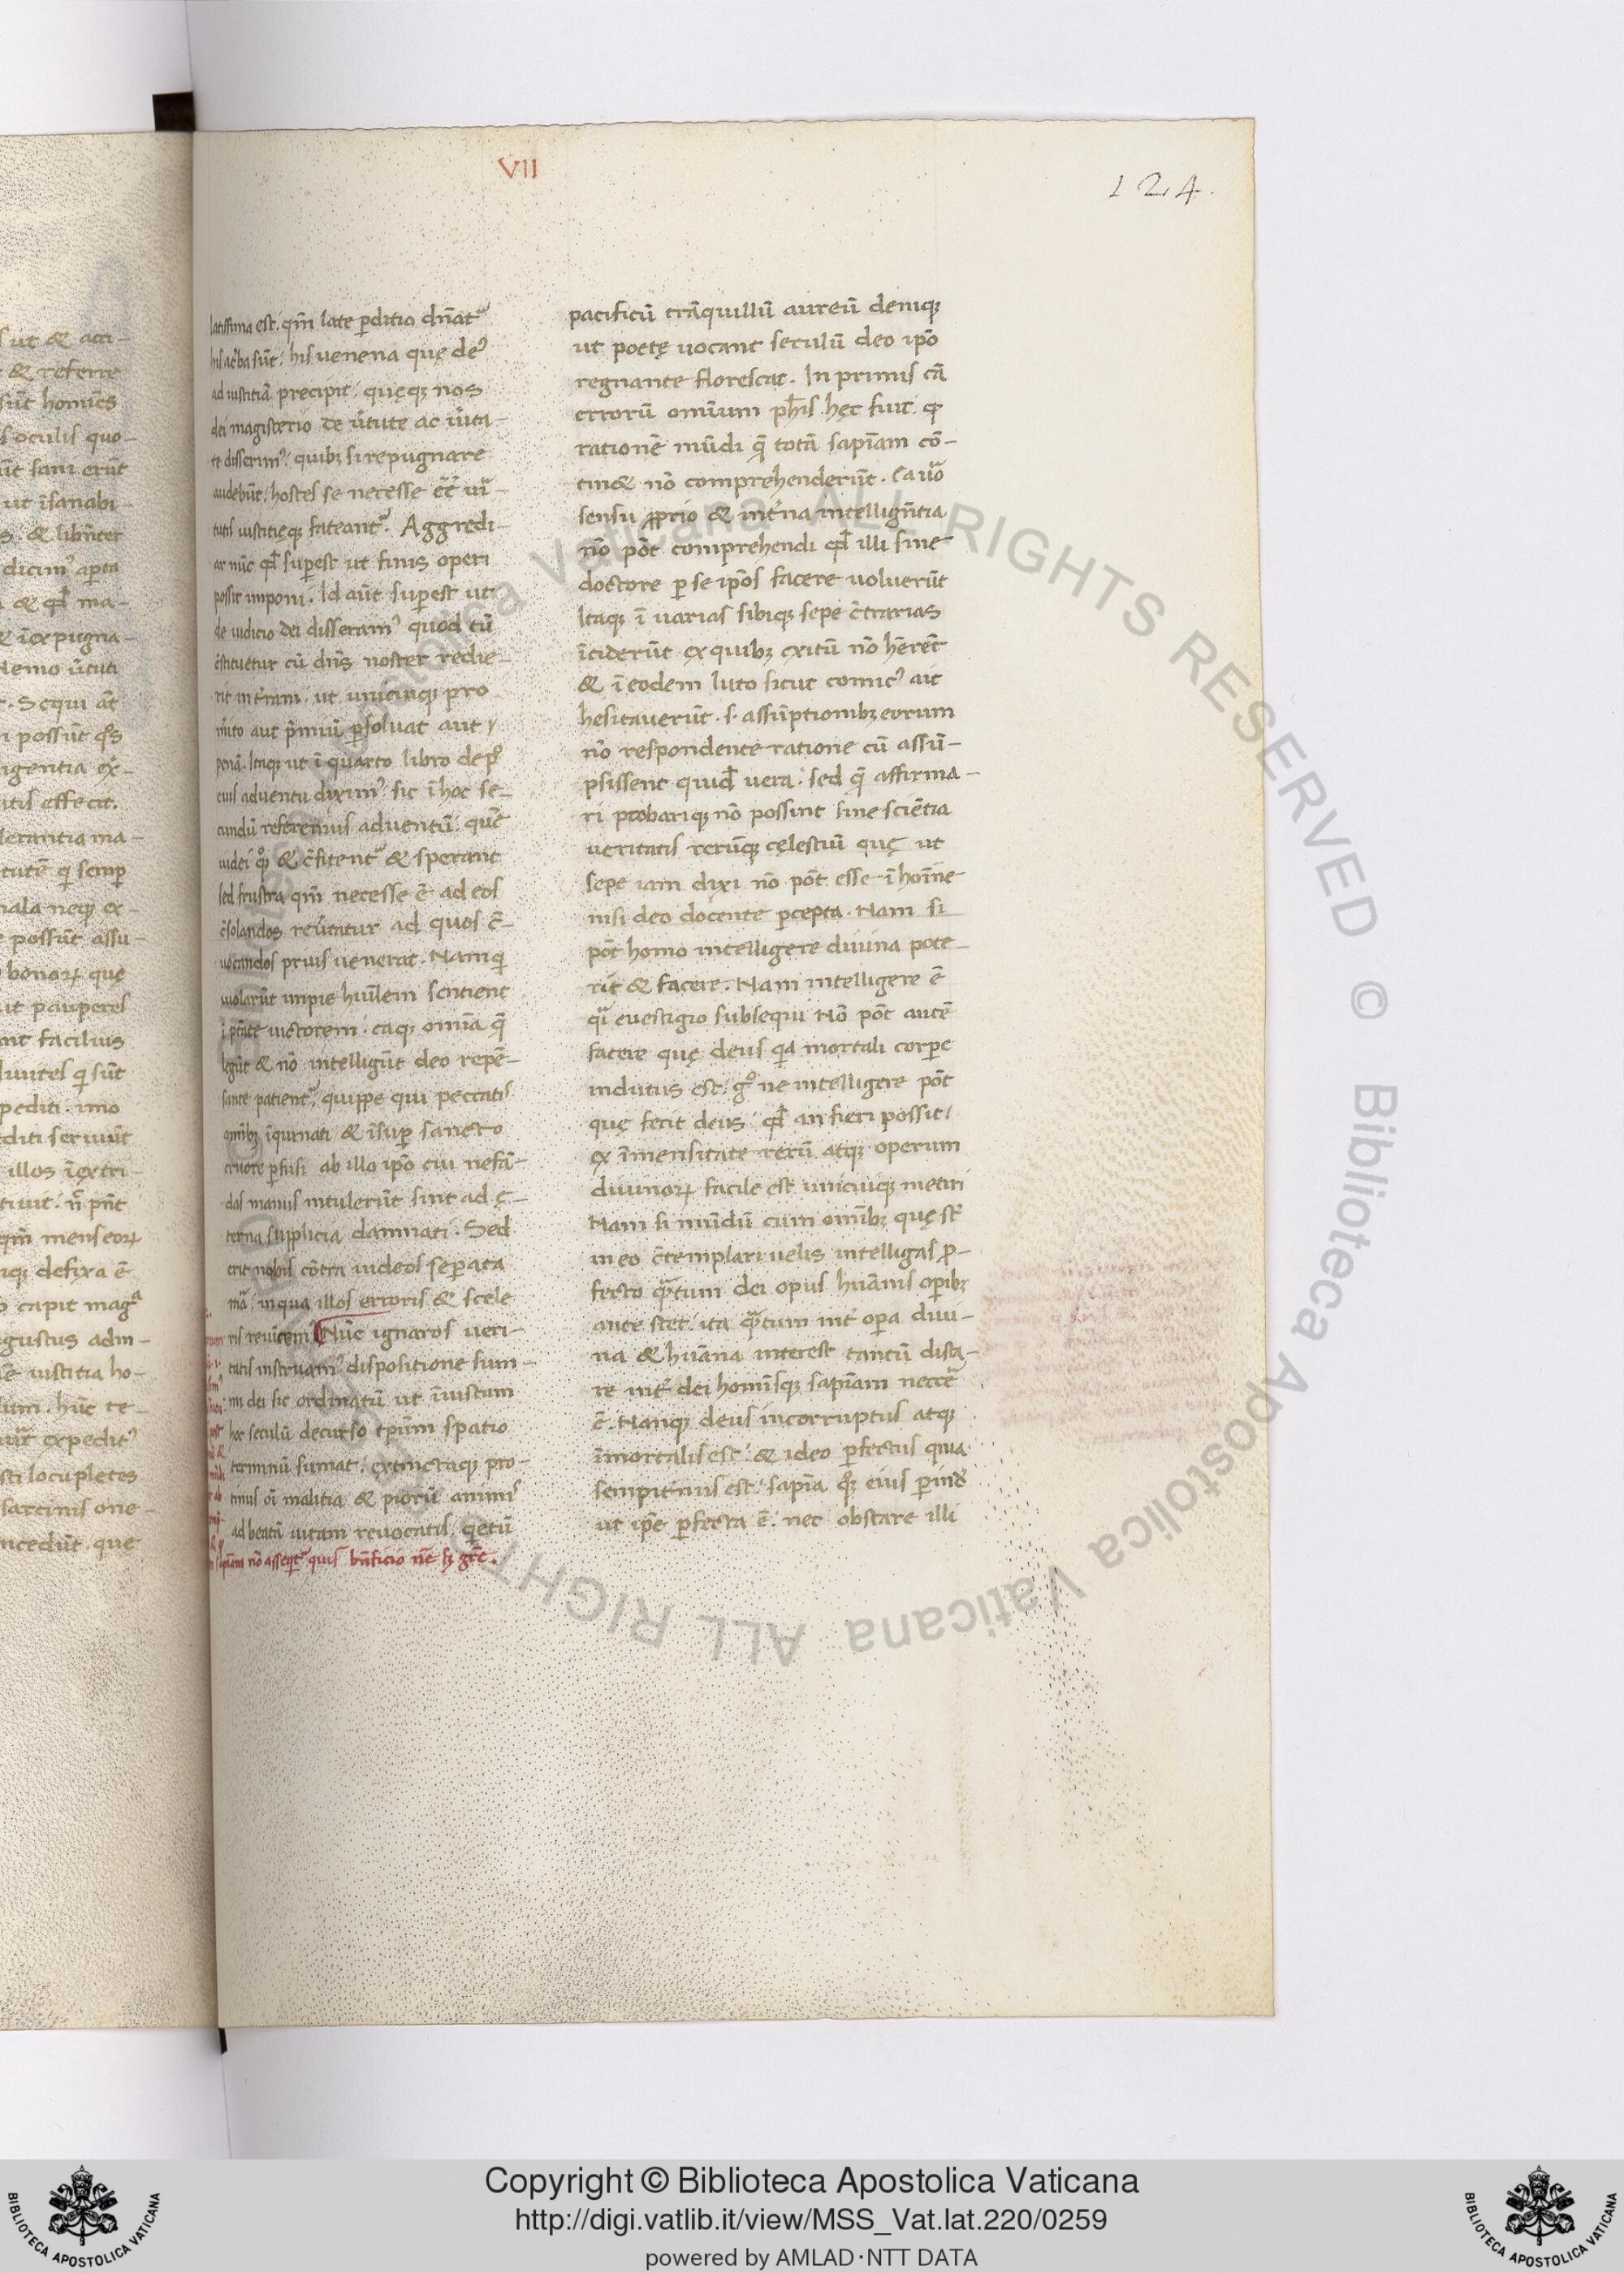 VII
124.
ut & acci-
& referre
sūt homīes
oculis quo-
ūt sani erūt
ut īsanabi-
& libn̄ter
dicim᾽ aꝑta
& qđ ma-
& īexpugna-
Nemo
Sequi āt
possūt qͦs
igentia
effecit.
ma-
q̄ semꝑ
mala neqꝫ ex-
possūt assu-
bonoꝝ quę
ut pauperes
facilius
q̄ sūt
pediti. imo
diti seruiūt
illos īextri-
qm̄ mens eoꝝ
defixa ē
capit
gustus adm-
iustitia ho-
hūc te-
expedit᾽
locupletes
sarcinis one-
incedūt. quę
latissima est. qm̄ late ꝑditio dn̄at᾽
his ac̄ba sūt. his uenena quę de᾽
ad iustitiā precipit. quęqꝫ nos
dei magisterio de ūtute ac ūita-
te disserim᾽. quibꝫ si repugnare
audebūt. hostes se necesse eē̄ uī-
tutis iustitięqꝫ fateant᾽. Aggredi-
ar nūc qđ suꝑest ut finis operi
possit imponi. Id aūt suꝑest ut
de iudicio dei disseram᾽ quod tū
c̄stituetur cū dn̄s noster redie-
rit in t̄ram. ut unicuiqꝫ pro
m̄ito aut p̄miū ꝑsoluat aut
penā. Itaqꝫ ut ī quarto libro de pͦ
eius aduentu dixim᾽ sic ī hoc se-
cundū referemus aduentū. quē
iudei qͦqꝫ & c̄fitent᾽ & sperant
sed frustra qm̄ necesse ē ad eos
c̄solandos reūtatur ad quos c̄-
uocandos prius uenerat. Nam q̄
uiolarūt impie huīlem sentient
ī ptāte uictorem. eaqꝫ omīa q̄
legūt & nō intelligūt deo repē-
sante patient᾽. quippe qui peccatis
omībꝫ īquinati & īsuꝑ sancto
cruore ꝑfusi ab illo ipō cui nefā-
das manus intulerūt sint ad ę-
terna supplicia damnati. Sed
erit nobis cōtra iudeos seꝑata
mā. in qua illos erroris & scele
ris reuīcem᾽ Nūc ignaros ueri-
tatis instruam᾽. dispositione sum-
mi dei sic ordinatū ut īiustum
hoc seculū decurso tpūm spatio
terminū sumat. extinctaqꝫ pro-
tinus oī malitia & piorū animis
ad beatā uitam reuocatis. qetū
sapīam nō asseqt᾽ quis bn̄ficio nē sꝫ gr̄e.
pacificū trāquillū aureū deniqꝫ
ut poetę uocant seculū deo ipō
regnante florescat. In primis cā
errorū omnium ph̄is hęc fuit. qꝫ
rationē mūdi q̄ totā sapīam cō-
tin& nō comprehenderūt. Ea u̅o
sensu ꝓprio & int̄na intelligētia
nō pōt comprehendi qđ illi sine
doctore ꝑ se ipōs facere uoluerūt
Itaqꝫ ī uarias sibiqꝫ sepe c̄trarias
īciderūt ex quibꝫ exitū nō hērēt
& ī eodem luto sicut comic᾽ ait
hesitauerūt. s. assūptionibꝫ eorum
nō respondente ratione cū assū-
psissent quidē uera. sed q̄ affirma-
ri probariqꝫ nō possint sine sciētia
ueritatis rerūqꝫ cęlestiū quę ut
sepe iam dixi nō pōt esse ī hoīne
nisi deo docente ꝑcepta. Nam si
pōt homo intelligere diuina pote-
rit & facere. Nam intelligere ē
q̄i euestigio subsequi Nō pōt autē
facere quę deus q̄a mortali corꝑe
indutus est. gͦ ne intelligere pōt
quę fecit deus. qđ an fieri possit
ex īmensitate rerū atqꝫ operum
diuinoꝝ facile est unicuiqꝫ metiri
Nam si mūdū cum omībꝫ quę st̄
in eo c̄templari uelis intelligas ꝓ-
fecto q̄tum dei opus huānis oꝑibꝫ
ante stet. ita q̄tum int̄ oꝑa diui-
na & huāna interest tantū dista-
re int̄ dei homīsqꝫ sapīam necce
ē. Nanqꝫ deus incorruptus atqꝫ
īmortalis est. & ideo ꝑfectus quia
sempit̄nus est. sapīa qͦqꝫ eius ꝑinđ
ut ipē ꝑfecta ē. nec obstare illi
Copyright © Biblioteca Apostolica Vaticana
http://digi.vatlib.it/view/MSS_Vat.lat.220/0259
powered by AMLAD·NTT DATA
BIBLIOTECA APOSTOLICA VATICANA
BIBLIOTECA APOSTOLICA VATICANA
© Biblioteca Apostolica Vaticana ALL RIGHTS RESERVED © Biblioteca Apostolica Vaticana ALL RIGHTS